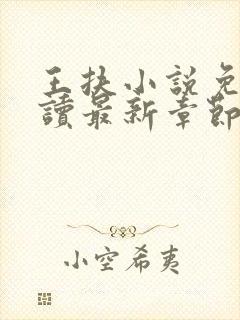 王扶小說免
讀最新章節
小空希夷